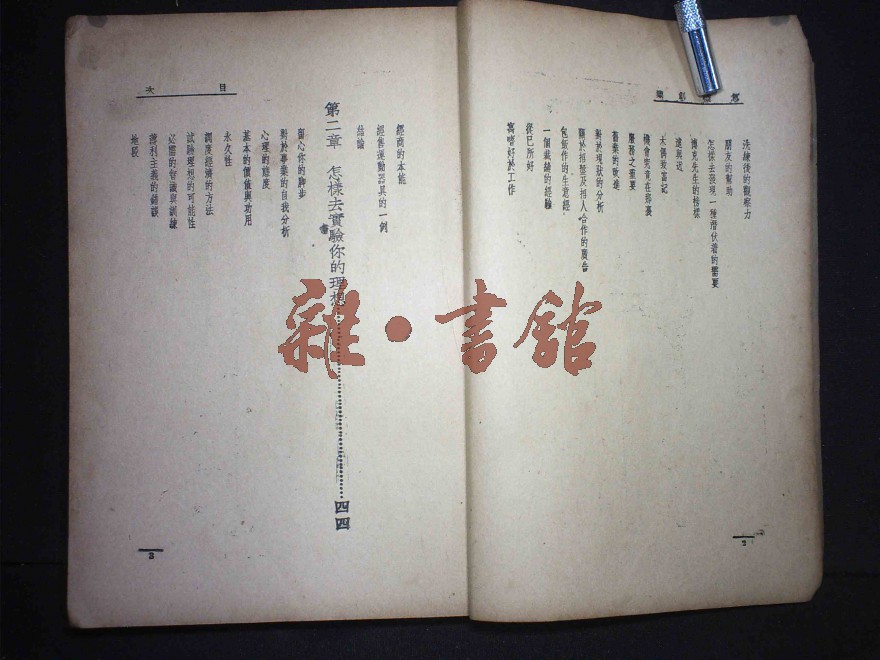 洗練後的觀察力
朋友的幫助
怎樣去發現一種潛伏着的需要
博克先生的榜樣
遠與近
木偶致富記
機會究竟在那裏
服務之重要
舊業的改進
對於現狀的分析
關於招盤及招人合作的廣告
包飯作的生意經
一個裁縫的經驗
從己所好
寓嗜好於工作
2
目次
經商的本能
經售運動器具的一例
結論
第二章 怎樣去實驗你的理想………四四
留心你的脚步
對於事業的自我分析
心理的態度
基本的價值與功用
永久性
調度經濟的方法
試驗理想的可能性
必需的智識與訓練
薄利主義的錯誤
地段
3
雜·書舘